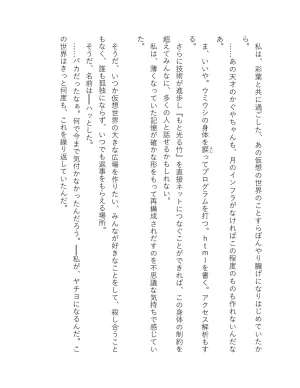 私は、彩葉と共に過ごした、あの仮想の世界のことすらぼんやり朧げになりはじめていたか
も。
……あの天才のかぐやちゃんも、月のインフラがなければこの程度のものも作れないんだな
あ。
ま、いいや。ウミウシの身体を捩ってプログラムを打つ。htmlを書く。アクセス解析もす
る。
さらに技術が進歩し『もと光る竹』を直接ネットにつなぐことができれば、この身体の制約を
超えてみんなに、多くの人と話せるかもしれない。
私は、薄くなっていた記憶が確かな形をもって再構成されだすのを不思議な気持ちで感じてい
た。
そうだ、いつか仮想世界の大きな広場を作りたい、みんなが好きなことをして、殺し合うこと
もなく、誰も孤独にならず、いつでも返事をもらえる場所。
そうだ、名前は――ハッとした。
……バカだったなぁ。何で今まで気付かなかったんだろう。――私が、ヤチヨになるんだ。こ
の世界はきっと何度も、これを繰り返していたんだ。